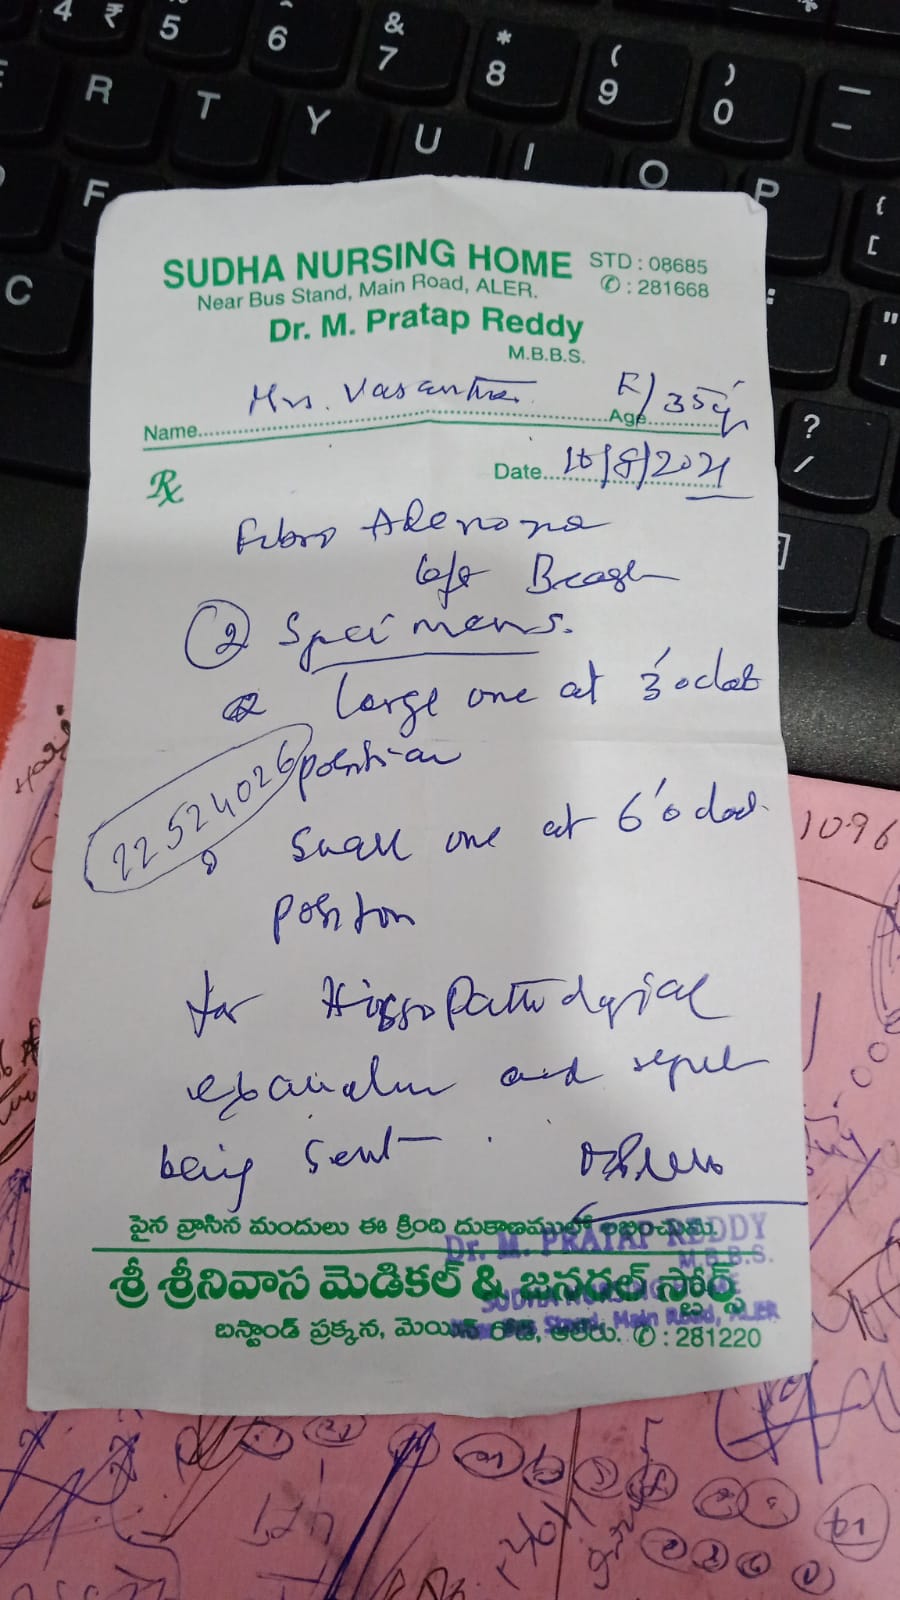 SUDHA NURSING HOME STD : 08685
Near Bus Stand, Main Road, ALER. ✆ : 281668
Dr. M. Pratap Reddy
M.B.B.S.
Name Mrs. Vasantha Age F/35yr
Rx Date 10/8/2021
Fibro Adenoma
left Breast
② Specimens.
Large one at 3'oclock
position
22524026
Small one at 6'oclock
position
for Histopathological
examination and report
being sent.
పైన వ్రాసిన మందులు ఈ క్రింది దుకాణములో లభించును.
Dr. M. PRATAP REDDY
M.B.B.S.
శ్రీ శ్రీనివాస మెడికల్ & జనరల్ స్టోర్స్
SUDHA NURSING HOME
Near Bus Stand, Main Road, ALER
బస్టాండ్ ప్రక్కన, మెయిన్ రోడ్, ఆలేరు. ✆ : 281220
1096
4 ₹ 5 6 & 7 * 8 ( 9 ) 0
R T Y U I O P { [
F : " '
C ? /